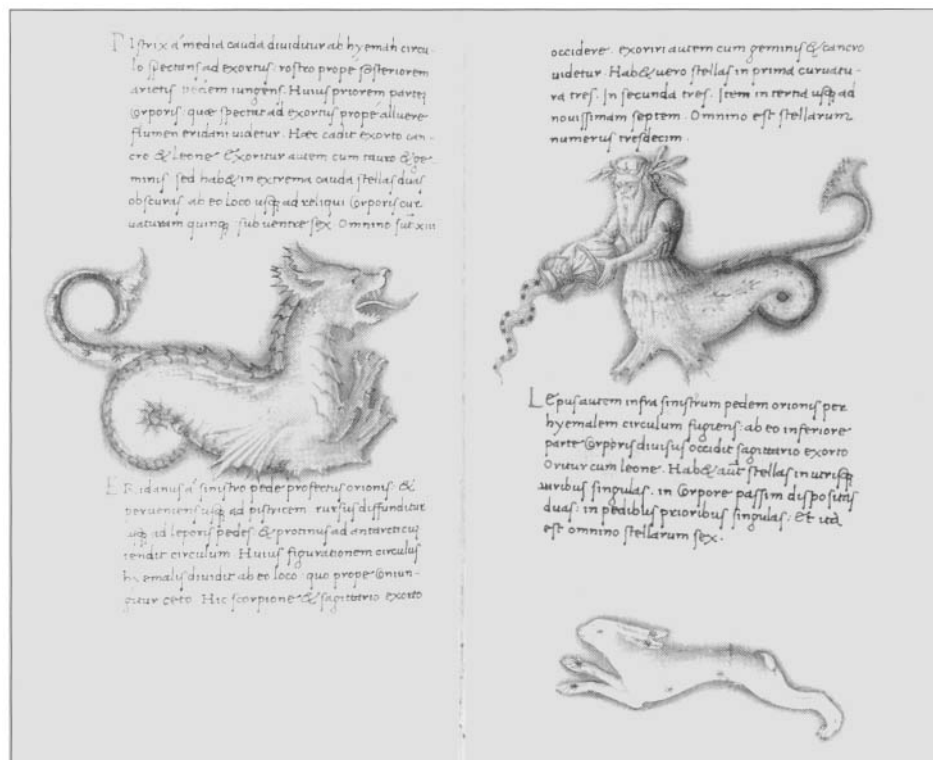 Pistrix a' media cauda diuiditur ab hyemali circu-
lo spectans ad exortus: rostro prope posteriorem
arietis pedem iungens. Huius priorem partem
corporis quæ spectat ad exortus prope alluere
flumen eridani uidetur. Hæc cadit exorto can-
cro & Leone Exoritur autem cum tauro & ge-
minis sed hab& in extrema cauda stellas duas
obscuras ab eo loco usq; ad reliqui corporis cur
uaturam quinq; sub uentre sex. Omnino sūt xiii
ERidanus a' sinistro pede profectus orionis &
perueniens usq; ad pistricem rursus diffunditur
usq; ad leporis pedes & protinus ad antarcticū
tendit circulum. Huius figurationem circulus
hyemalis diuidit ab eo loco quo prope coniun-
gitur ceto. Hic scorpione & sagittario exorto
occidere. exoriri autem cum geminis & cancro
uidetur. Hab& uero stellas in prima curuatu-
ra tres. In secunda tres. Item in tertia usq; ad
nouissimam septem. Omnino est stellarum
numerus tresdecim.
Lepus autem infra sinistrum pedem orionis per
hyemalem circulum fugiens: ab eo inferiore
parte corporis diuisus occidit sagittario exorto
Oritur cum leone. Hab& aūt stellas in utrisq;
auribus singulas. in corpore passim dispositas
duas: in pedibus prioribus singulas: Et ita
est omnino stellarum sex.